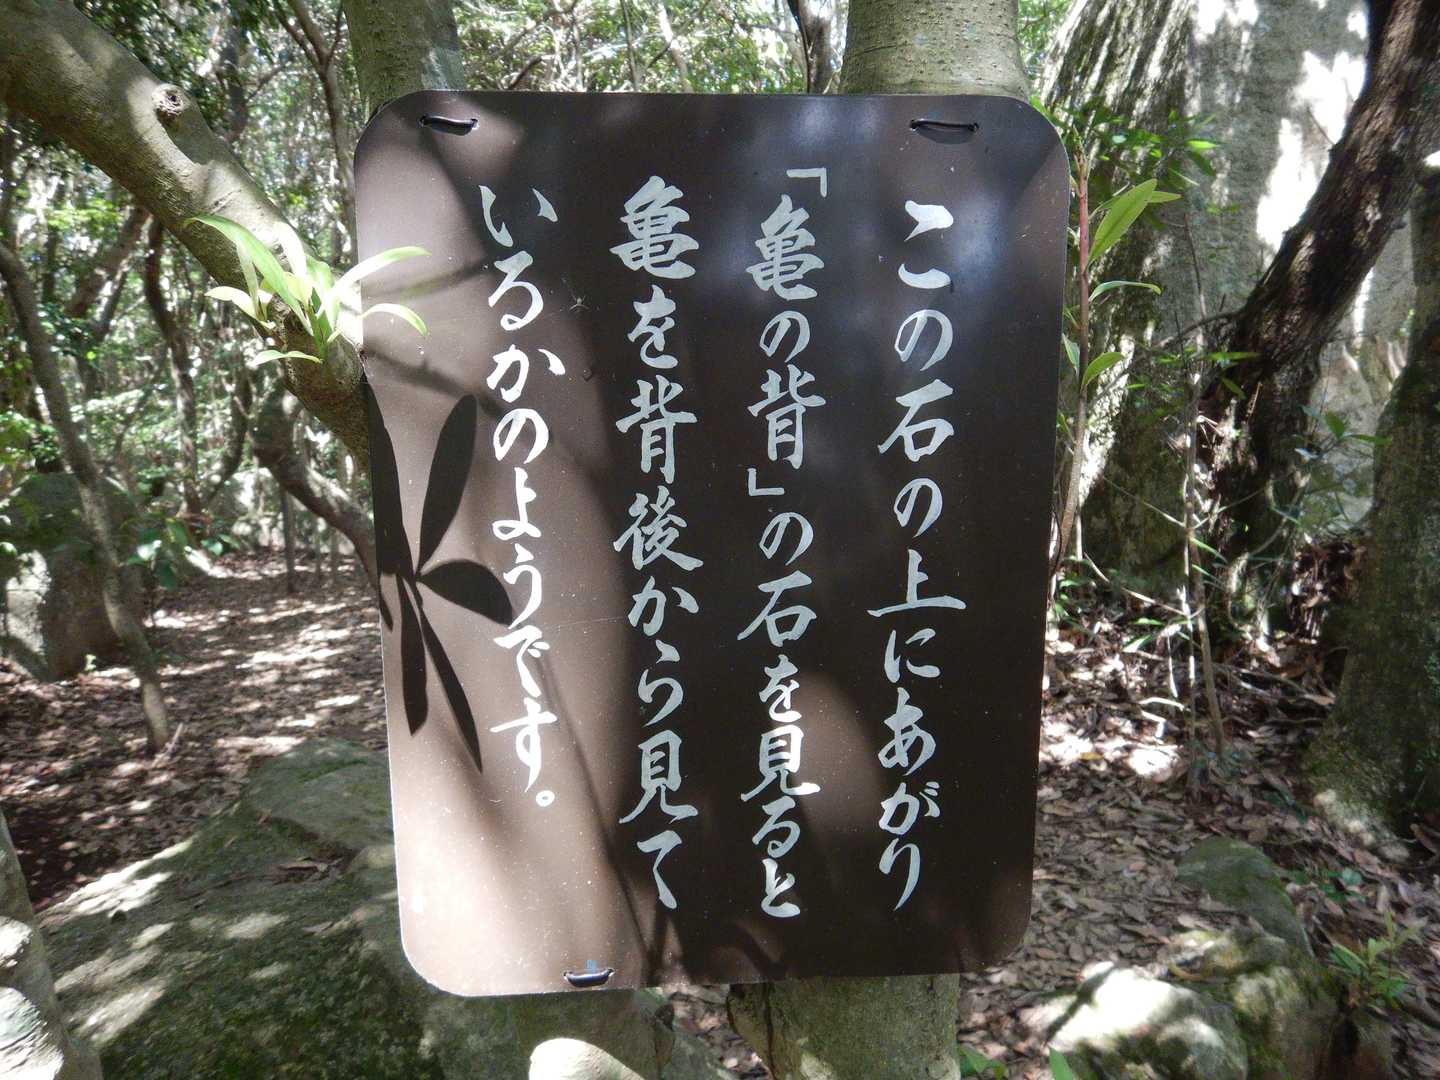 この石の上にあがり
「亀の背」の石を見ると
亀を背後から見て
いるかのようです。